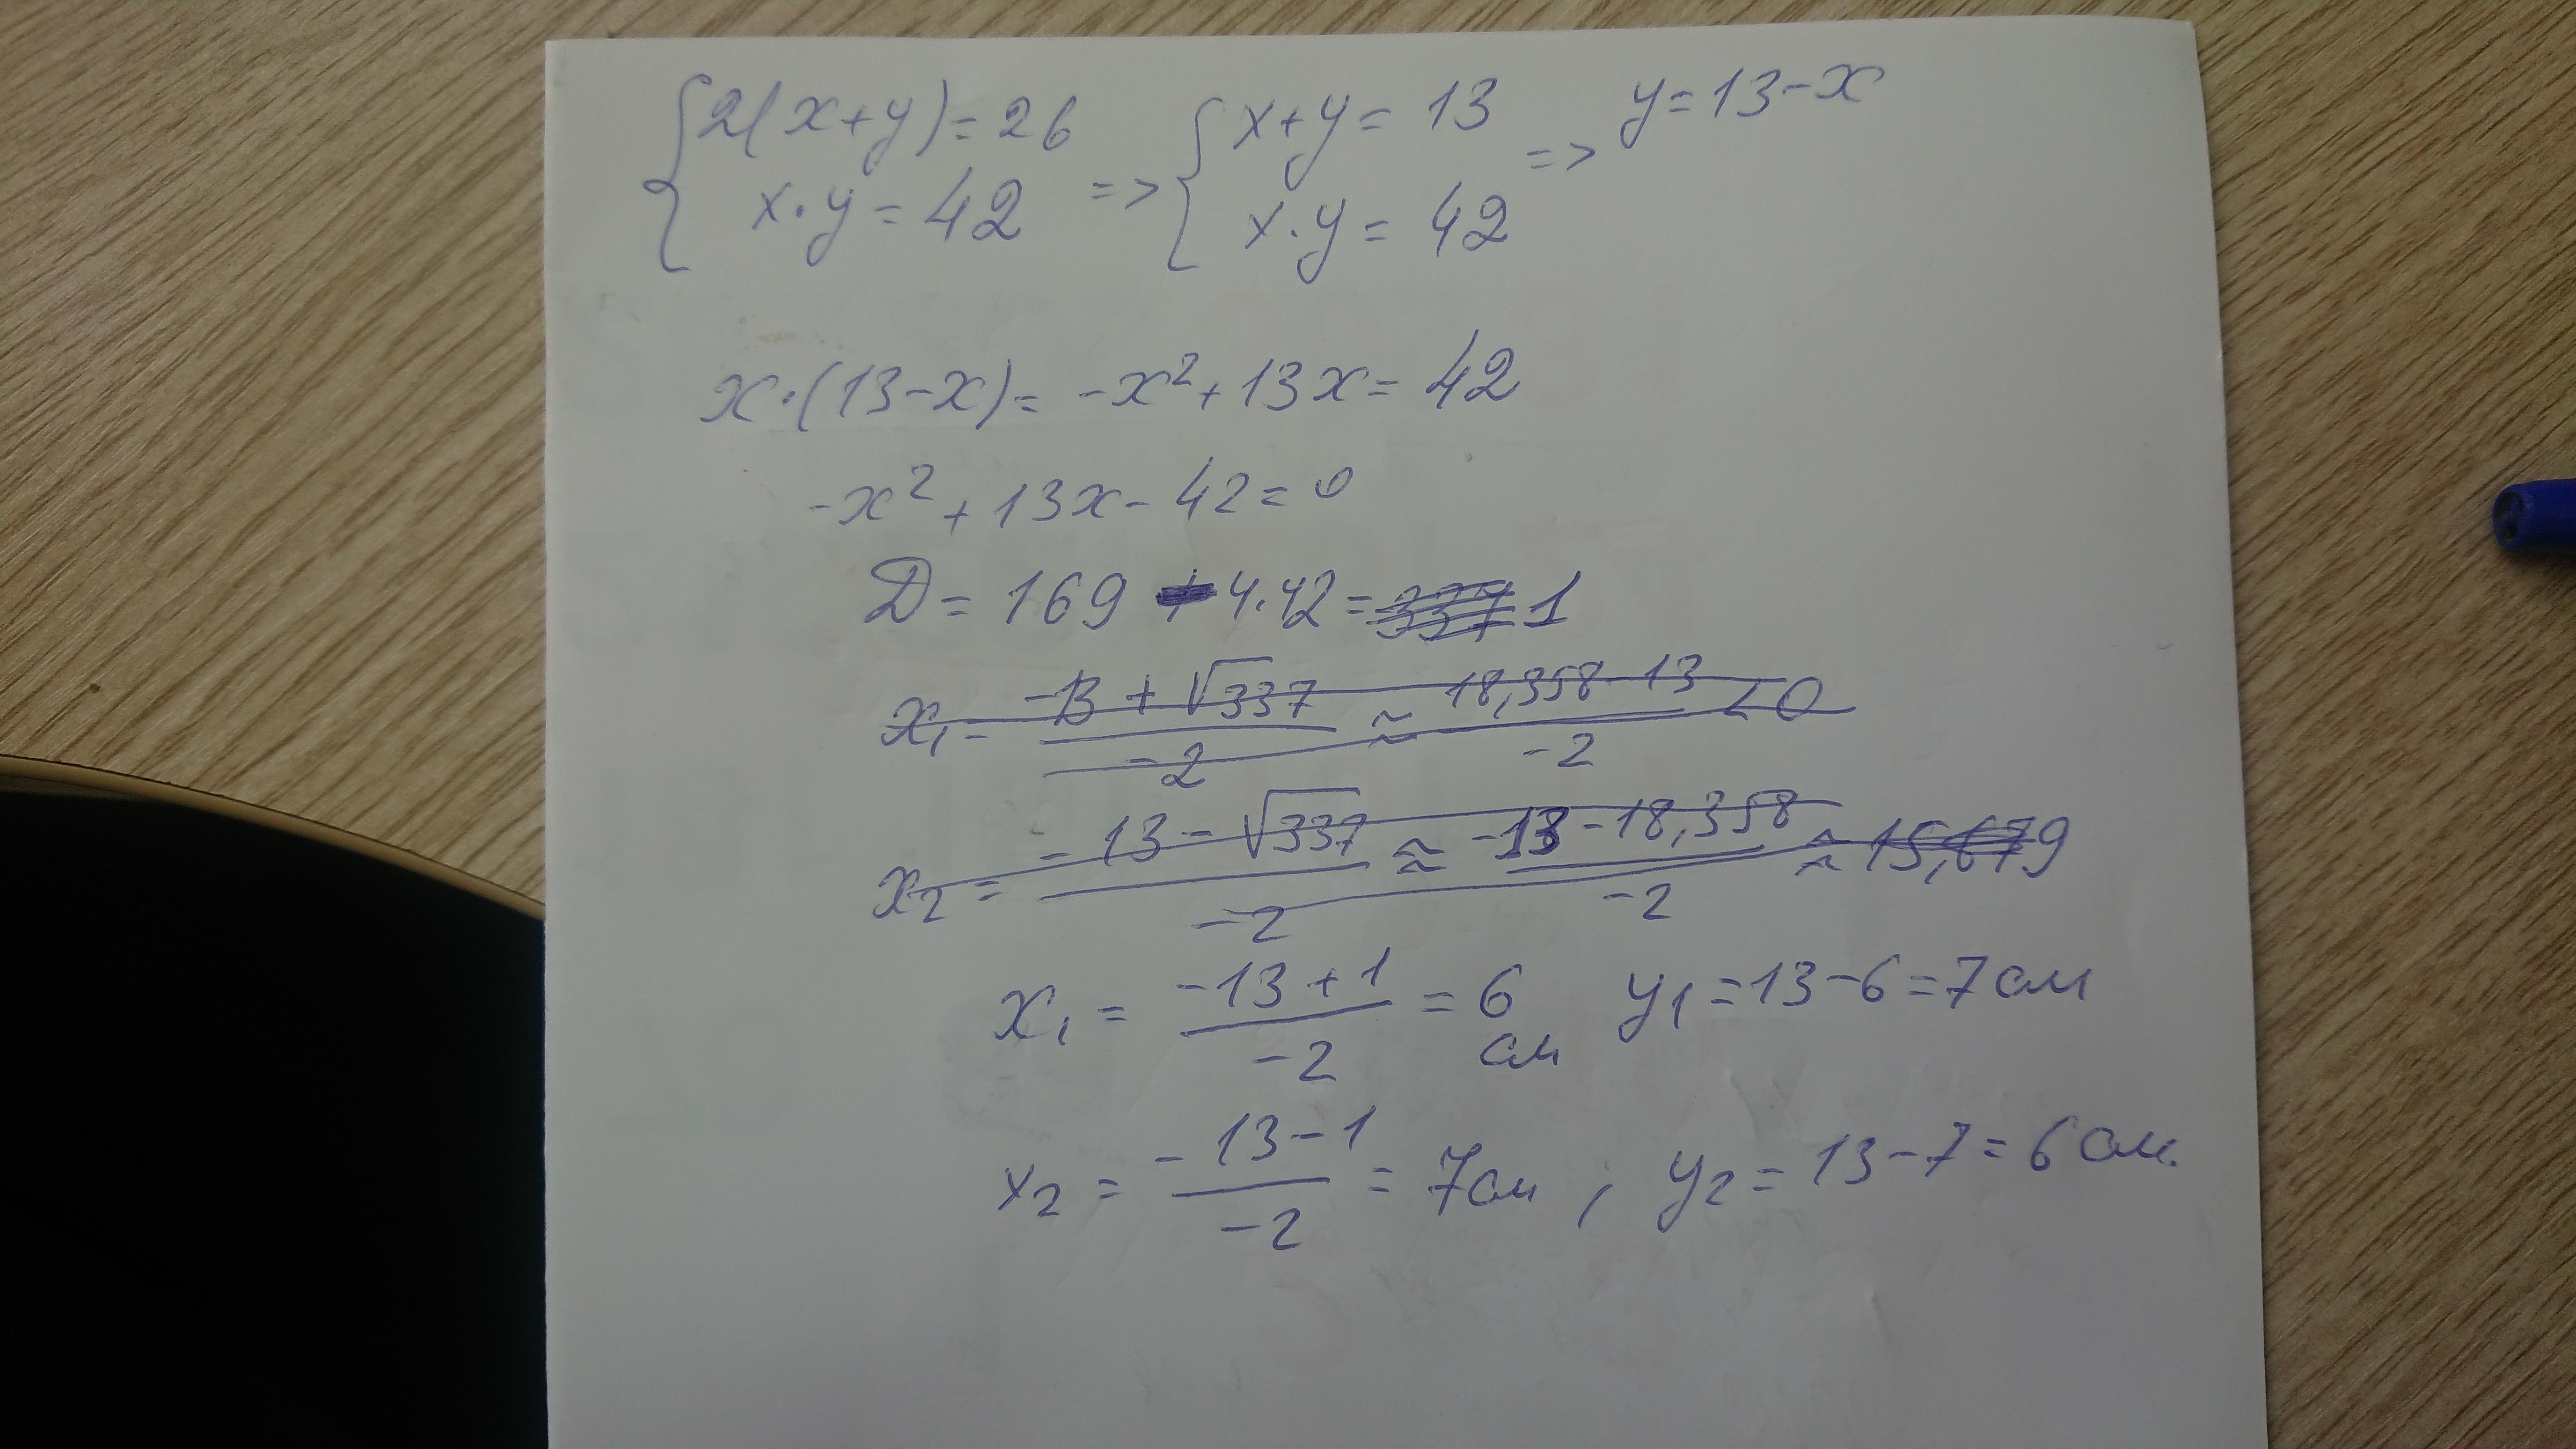 {2(x+y)=26 => {x+y=13 => y=13-x
x·y=42 x·y=42
x·(13-x)=-x²+13x=42
-x²+13x-42=0
D=169-4·42=337 1
x₁=(-13+√337)/-2≈(18,358-13)/-2<0
x₂=(-13-√337)/-2≈(-13-18,358)/-2≈15,679
x₁=(-13+1)/-2=6 см y₁=13-6=7см
x₂=(-13-1)/-2=7см; y₂=13-7=6см.